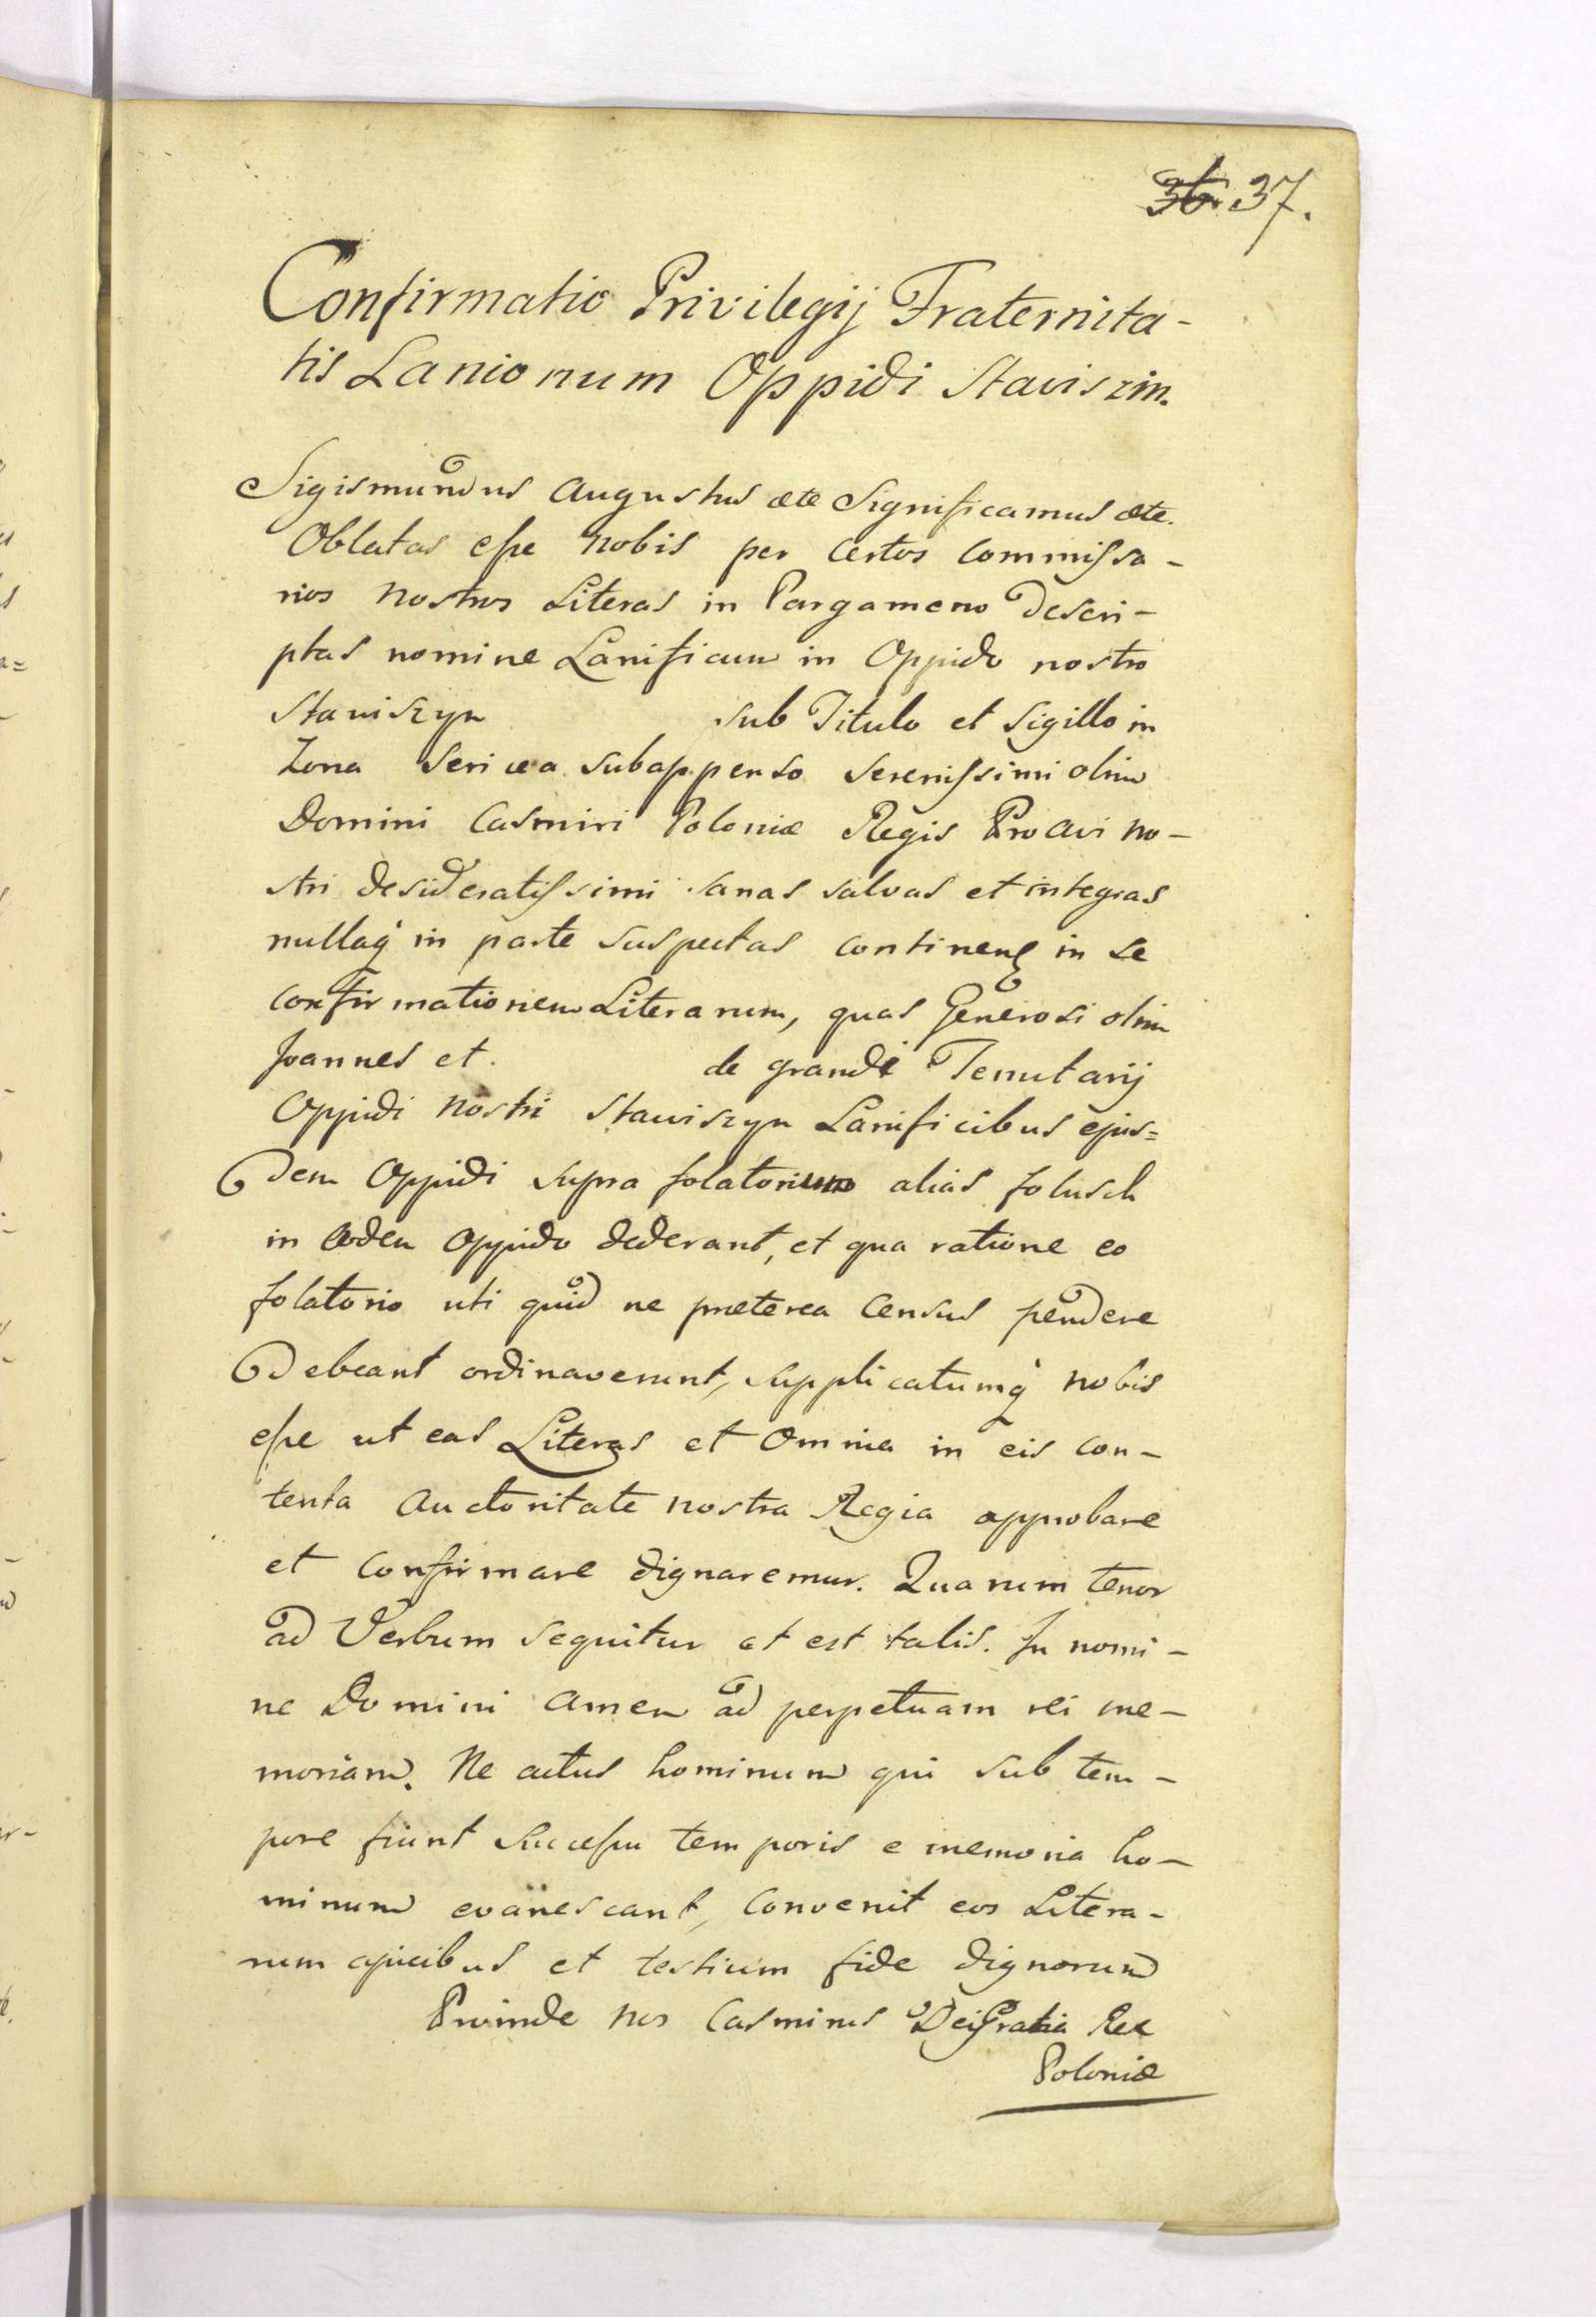 36. 37.
Confirmatio Privilegij Fraternita-
tis Lanionum Oppidi Staviszin.
Sigismundus Augustus etc Significamus etc.
Oblatas esse nobis per certos Commissa-
rios nostros Literas in Pargameno Descri-
ptas nomine Lanificum in Oppido nostro
Staviszyn sub Titulo et Sigillo in
Zona Sericea subappenso Serenissimi olim
Domini Casmiri Poloniæ Regis Proavi no-
stri desideratissimi sanas salvas et integras
nullaq in parte suspectas continen in se
confirmationem Literarum, quas Generosi olim
Joannes et de grandi Tenutarij
Oppidi nostri Stawiszyn Lanificibus ejus=
Dem Oppidi supra folatorium alias folusch
in eodem Oppido dederant, et qua ratione eo
folatorio uti quid ne preterea Census pendere
Debeant ordinaverunt, supplicatumq nobis
esse ut eas Literas et Omnia in eis con-
tenta Auctoritate nostra Regia approbare
et Confirmare dignaremur. Quarum tenor
ad Verbum sequitur et est talis. In nomi-
ne Domini Amen ad perpetuam rei me-
moriam. Ne actus hominum qui sub tem-
pore fiunt Successu temporis e memoria ho-
minum evanescant, convenit eos Litera-
rum apicibus et testium fide dignorum
Proinde nos Casmirus Dei Gratia Rex
Poloniæ